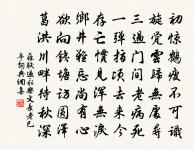 初驚鶴瘦不可識
旋覺雲歸無處尋
三過門間老病死
一彈指頃去來今
存亡慣見渾無淚
鄉井難忘尚有心
欲向錢塘訪圓澤
葛洪川畔待秋深
蘇軾過永樂文長老已
卒詞典網書